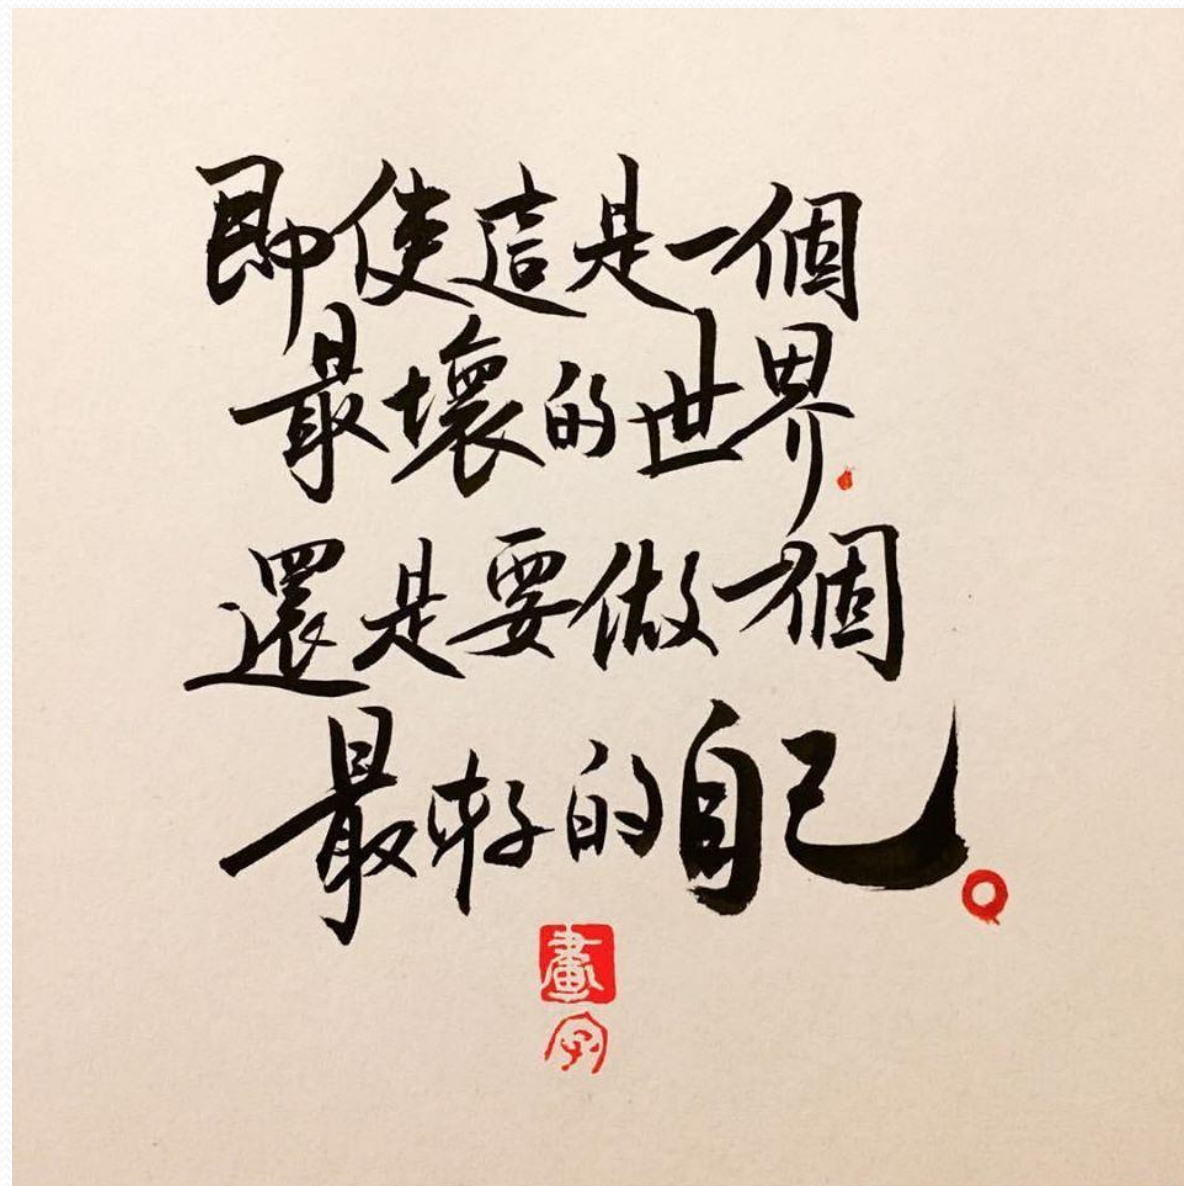 即使這是一個
最壞的世界
還是要做一個
最好的自己。
畫
字